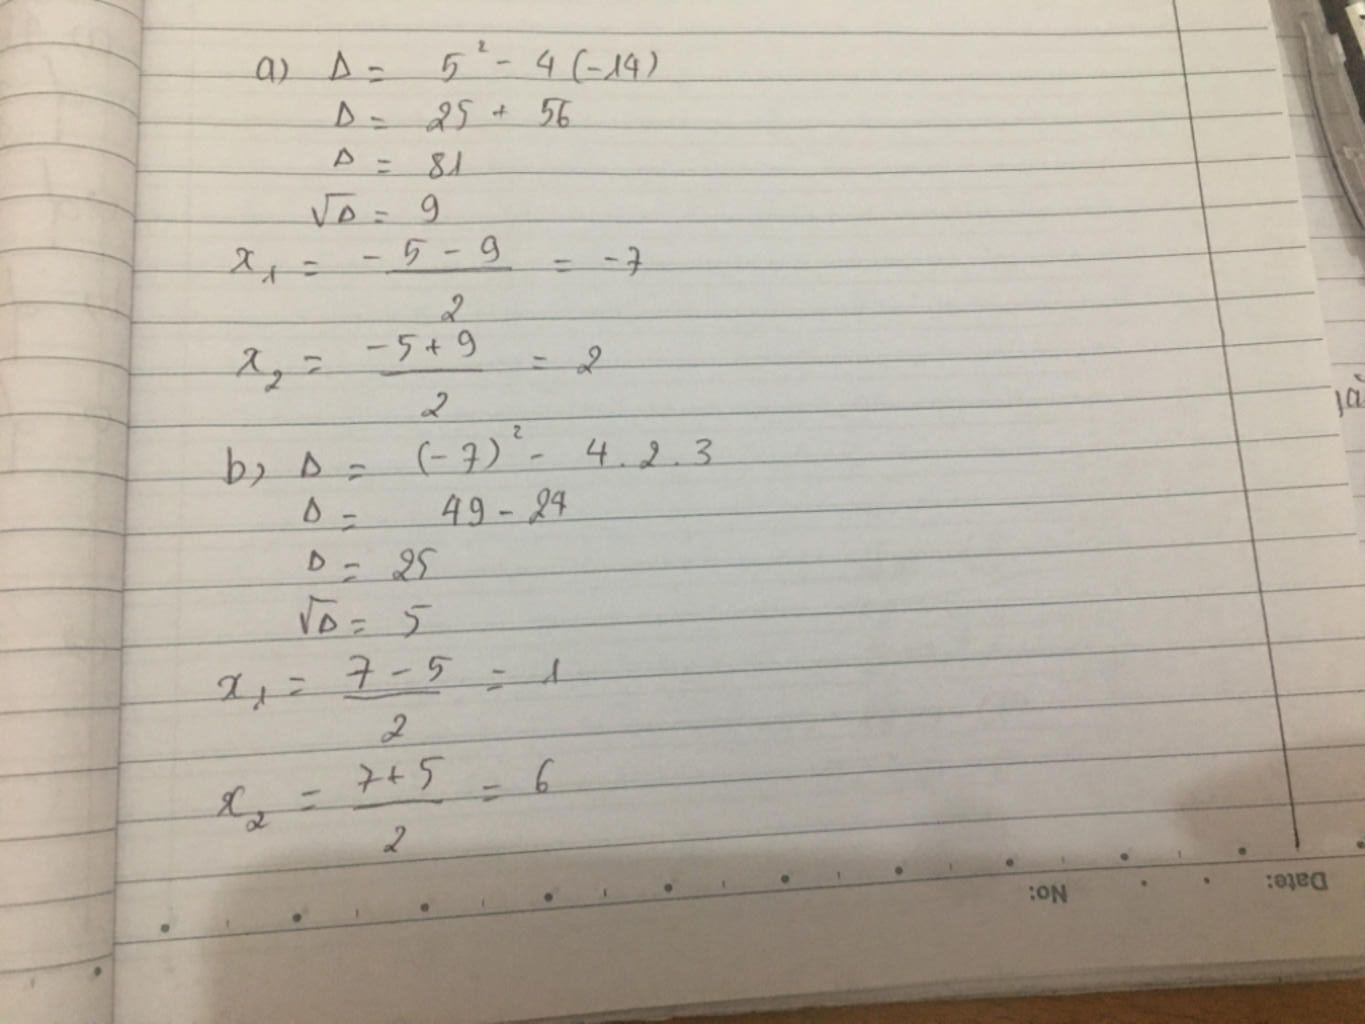 a) Δ = 5² - 4(-14)
Δ = 25 + 56
Δ = 81
√Δ = 9
x₁ = (-5 - 9)/2 = -7
x₂ = (-5 + 9)/2 = 2
b) Δ = (-7)² - 4.2.3
Δ = 49 - 24
Δ = 25
√Δ = 5
x₁ = (7 - 5)/2 = 1
x₂ = (7 + 5)/2 = 6
No:
Date: